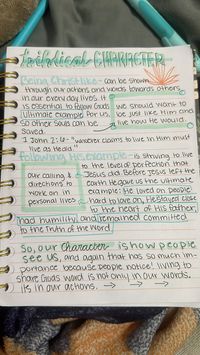 Individual CHARACTER
Being Christ-like - can be shown
through our actions, and words towards others
in our every day lives. It
is essential to follow Gods
ultimate example for us,
so other souls can be
saved.
we should want to
be just like Him and
live how He would.
1 John 2:6- "whoever claims to live in Him must
live as He did."
Following His example - is striving to live
to the level of perfection that
Jesus did. Before Jesus left the
earth He gave us the ultimate
example: He loved on people
hard to love on, He stayed close
to the heart of His father,
our calling &
directions to
work on in
personal lives
had humility, and remained committed
to the truth of the Word.
So, our Character is how people
see us, and again that has so much im-
portance because people notice! living to
share Gods word is not only in our words,
its in our actions. → → →